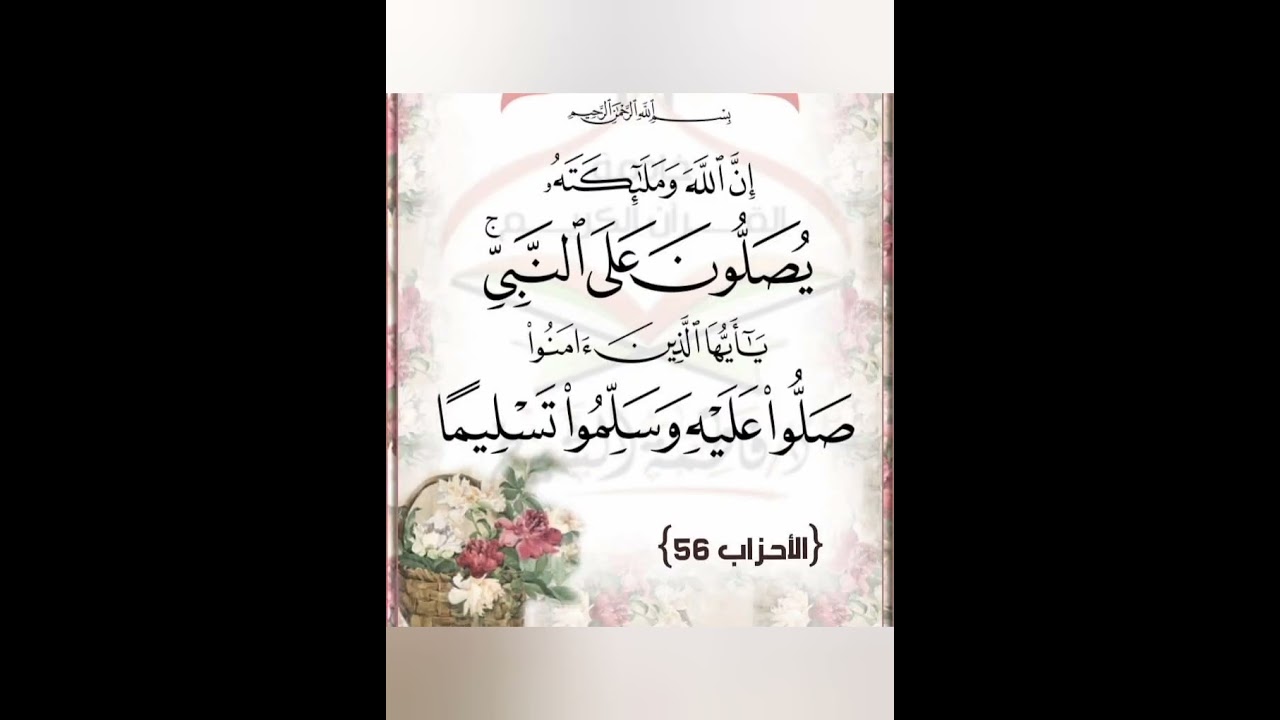 بِسْمِ ٱللَّهِ ٱلرَّحْمَٰنِ ٱلرَّحِيمِ
إِنَّ ٱللَّهَ وَمَلَـٰٓئِكَتَهُۥ
يُصَلُّونَ عَلَى ٱلنَّبِىِّ ۚ
يَـٰٓأَيُّهَا ٱلَّذِينَ ءَامَنُوا۟
صَلُّوا۟ عَلَيْهِ وَسَلِّمُوا۟ تَسْلِيمًا
{الأحزاب 56}
القرآن الكريم